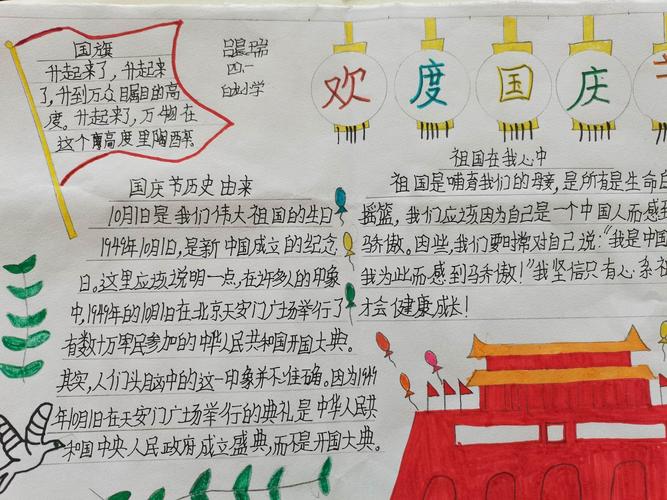 国旗
升起来了，升起来
了，升到万众瞩目的高
度。升起来了，万物在
这个高度里陶醉。
四.一
小学
欢度国庆
国庆节历史由来
10月1日是我们伟大祖国的生日
1949年10月1日，是新中国成立的纪念
日。这里应该说明一点，在许多人的印象
中，1949年的10月1日在北京天安门广场举行了
有数十万军民参加的中华人民共和国开国大典。
其实，人们头脑中的这一印象并不准确。因为1949
年10月1日在天安门广场举行的典礼是中华人民共
和国中央人民政府成立盛典，而不是开国大典。
祖国在我心中
祖国是哺育我们的母亲，是所有是生命自
摇篮，我们应该因为自己是一个中国人而感到
骄傲。因些，我们要时常对自己说："我是中国
我为此而感到骄傲！"我坚信只有心系祖
才会健康成长！